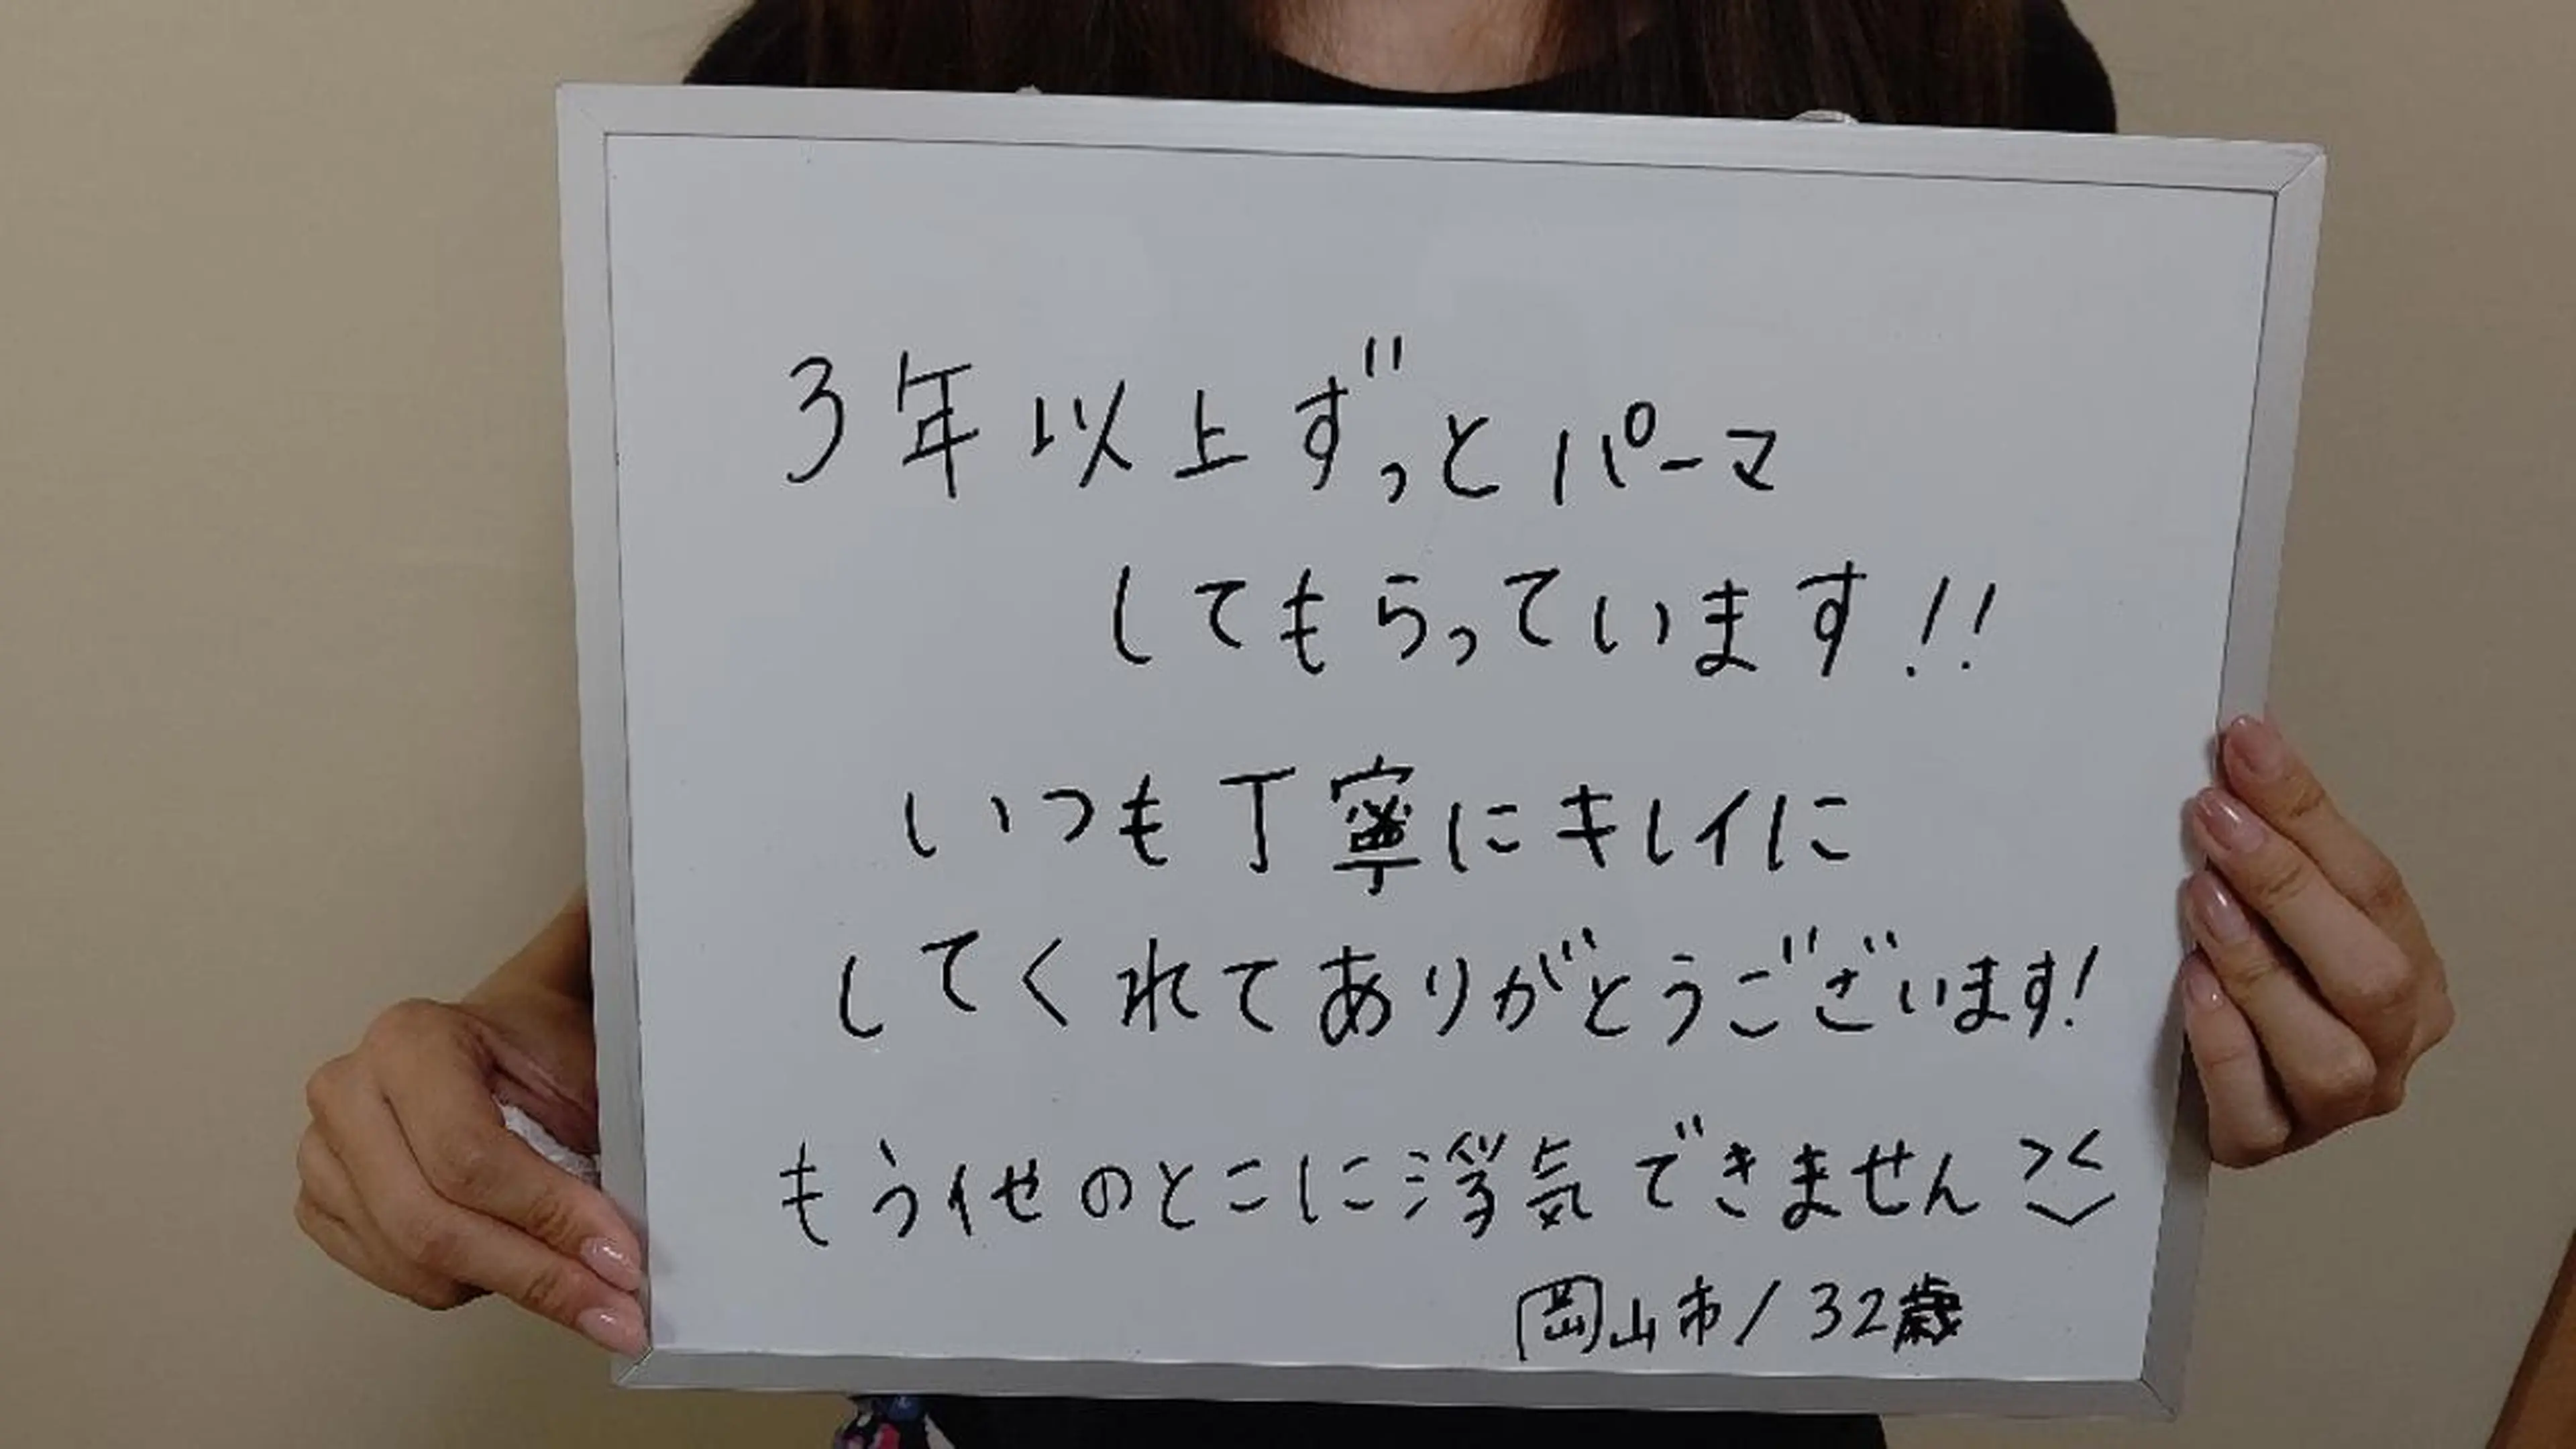 3年以上ずっとパーマ
してもらっています!!
いつも丁寧にキレイに
してくれてありがとうございます!
もう他のとこに浮気できません
岡山市/32歳